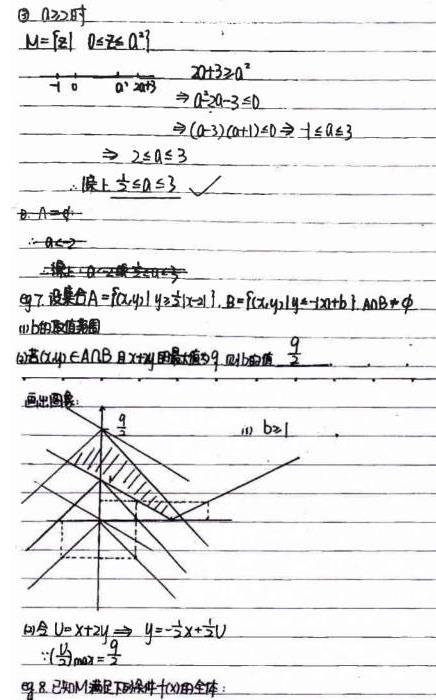 ③ a≥2时
M={z| 0≤z≤a²}
-1 0 a² 2a+3
2a+3≥a²
⇒a²-2a-3≤0
⇒(a-3)(a+1)≤0⇒-1≤a≤3
⇒ 2≤a≤3
∴综上 ½≤a≤3 ✓
B. A=ϕ
∴a<-2
eg7. 设集合A={(x,y)|y≥½|x-2|}, B={(x,y)|y≤-|x|+b}, A∩B≠ϕ
(1)b的取值范围
(2)若(x,y)∈A∩B 且x+2y的最大值为9 则b的值 9/2
画出图象:
9/2
(1) b≥1
(2)令U=x+2y⇒ y=-½x+½U
∵(U/2)max=9/2
eg 8. 已知M满足下列条件f(x)的全体: